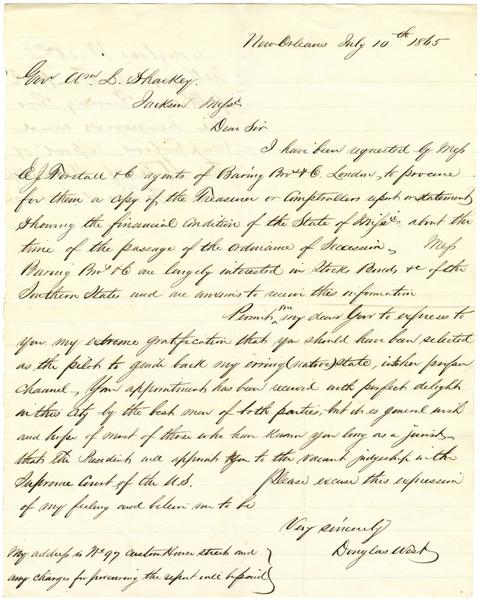 New Orleans July 10th 1865
Gov Wm L. Sharkey.
Jackson Missi
Dear Sir
I have been requested by Mess
E J Forstall & Co agents of Baring Bros & Co London, to procure
for them a copy of the Treasurer or Comptrollers report or statement
showing the financial condition of the State of Missi about the
time of the passage of the ordinance of Secession. Mess
Baring Bros & Co are largely interested in Stocks Bonds &c of the
Southern States and are anxious to receive this information
Permit me my dear Govr to express to
you my extreme gratification that you should have been selected
as the pilot to guide back my erring (native) state, into her proper
channel, Your appointment has been received with perfect delight
in this city by the best men of both parties, but it is general wish
and hope of most of those who have known you long as a jurist
that the President will appoint you to the vacant judgeship in the
Supreme Court of the U.S. Please excuse this expression
of my feeling and believe me to be
Very sincerely
Douglas West
My address is No 97 Custom House street and
any charges for procuring the report will be paid